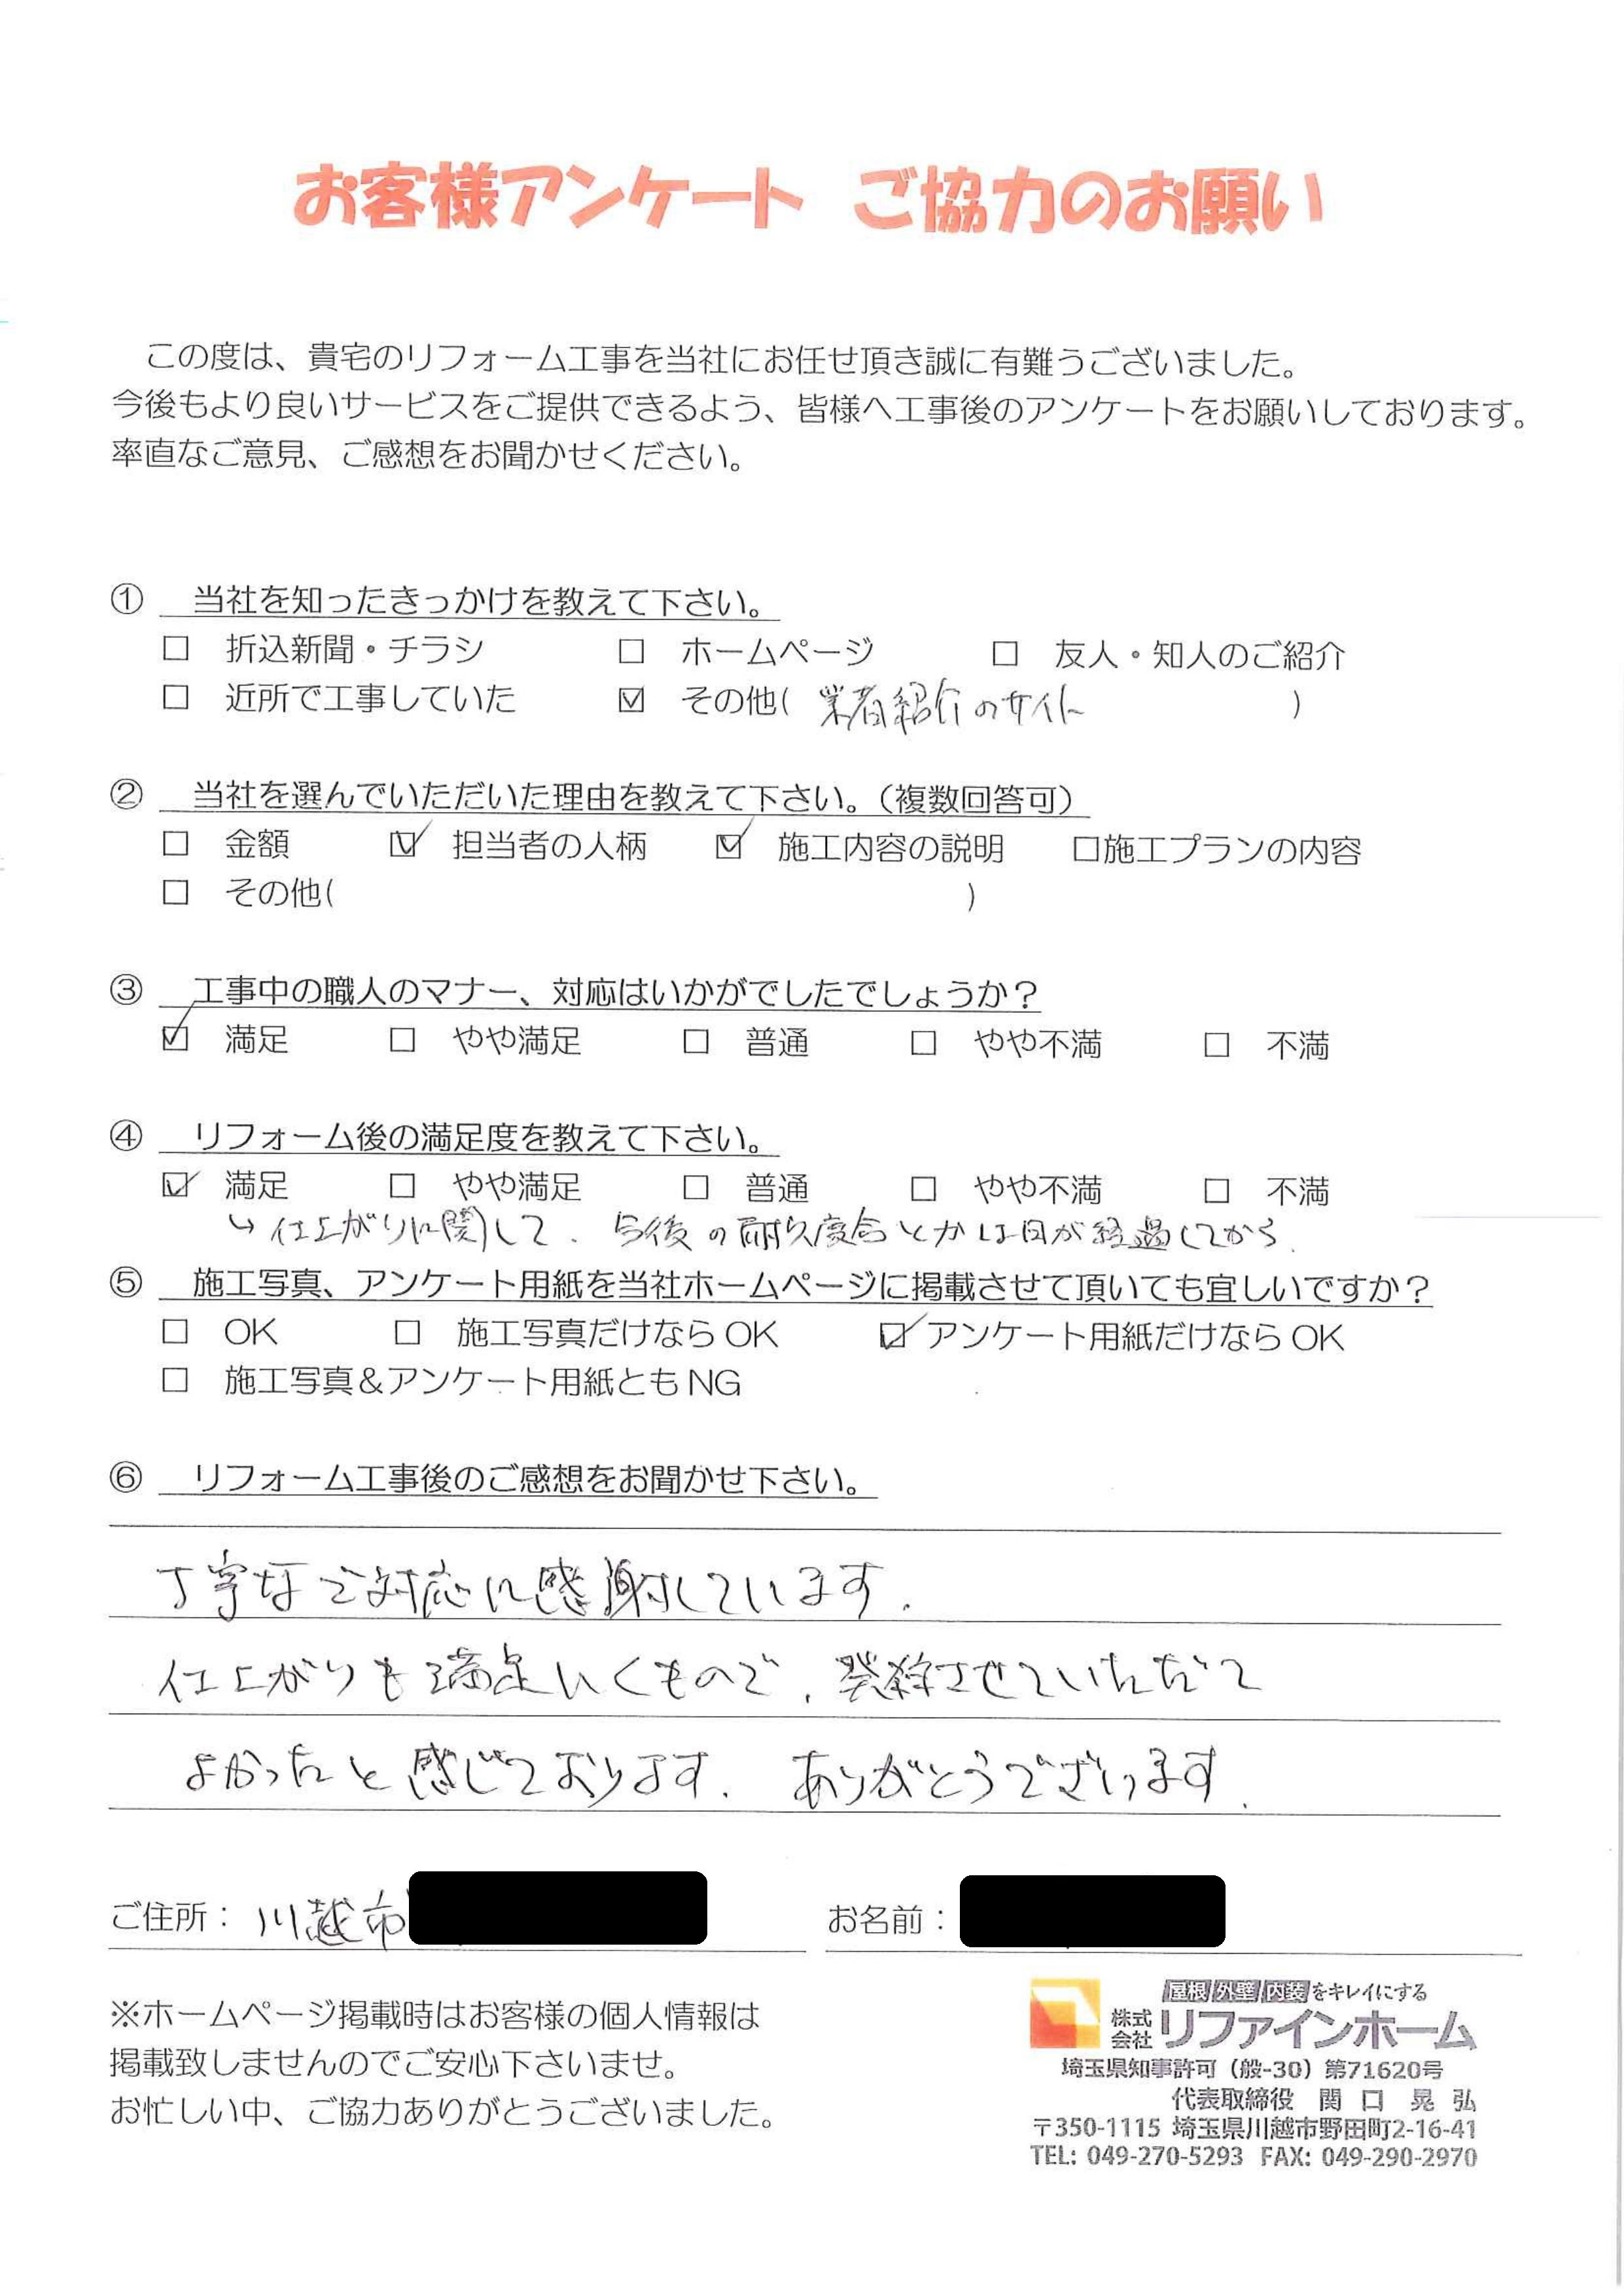 お客様アンケート ご協力のお願い
この度は、貴宅のリフォーム工事を当社にお任せ頂き誠に有難うございました。
今後もより良いサービスをご提供できるよう、皆様へ工事後のアンケートをお願いしております。
率直なご意見、ご感想をお聞かせください。
① 当社を知ったきっかけを教えて下さい。
□ 折込新聞・チラシ □ ホームページ □ 友人・知人のご紹介
□ 近所で工事していた ☑ その他( 業者紹介のサイト )
② 当社を選んでいただいた理由を教えて下さい。（複数回答可）
□ 金額 ☑ 担当者の人柄 ☑ 施工内容の説明 □施工プランの内容
□ その他( )
③ 工事中の職人のマナー、対応はいかがでしたでしょうか？
☑ 満足 □ やや満足 □ 普通 □ やや不満 □ 不満
④ リフォーム後の満足度を教えて下さい。
☑ 満足 □ やや満足 □ 普通 □ やや不満 □ 不満
↳ 仕上がりに関して、今後の耐久度合とかは日が経過してから.
⑤ 施工写真、アンケート用紙を当社ホームページに掲載させて頂いても宜しいですか？
□ OK □ 施工写真だけなら OK ☑アンケート用紙だけなら OK
□ 施工写真＆アンケート用紙とも NG
⑥ リフォーム工事後のご感想をお聞かせ下さい。
丁寧なご対応に感謝しています.
仕上がりも満足いくもので、させていただいて
よかったと感じております. ありがとうございます.
ご住所： 川越市 お名前：
※ホームページ掲載時はお客様の個人情報は
掲載致しませんのでご安心下さいませ。
お忙しい中、ご協力ありがとうございました。
屋根 外壁 内装をキレイにする
株式会社 リファインホーム
埼玉県知事許可（般-30）第71620号
代表取締役 関 口 晃 弘
〒350-1115 埼玉県川越市野田町2-16-41
TEL: 049-270-5293 FAX: 049-290-2970